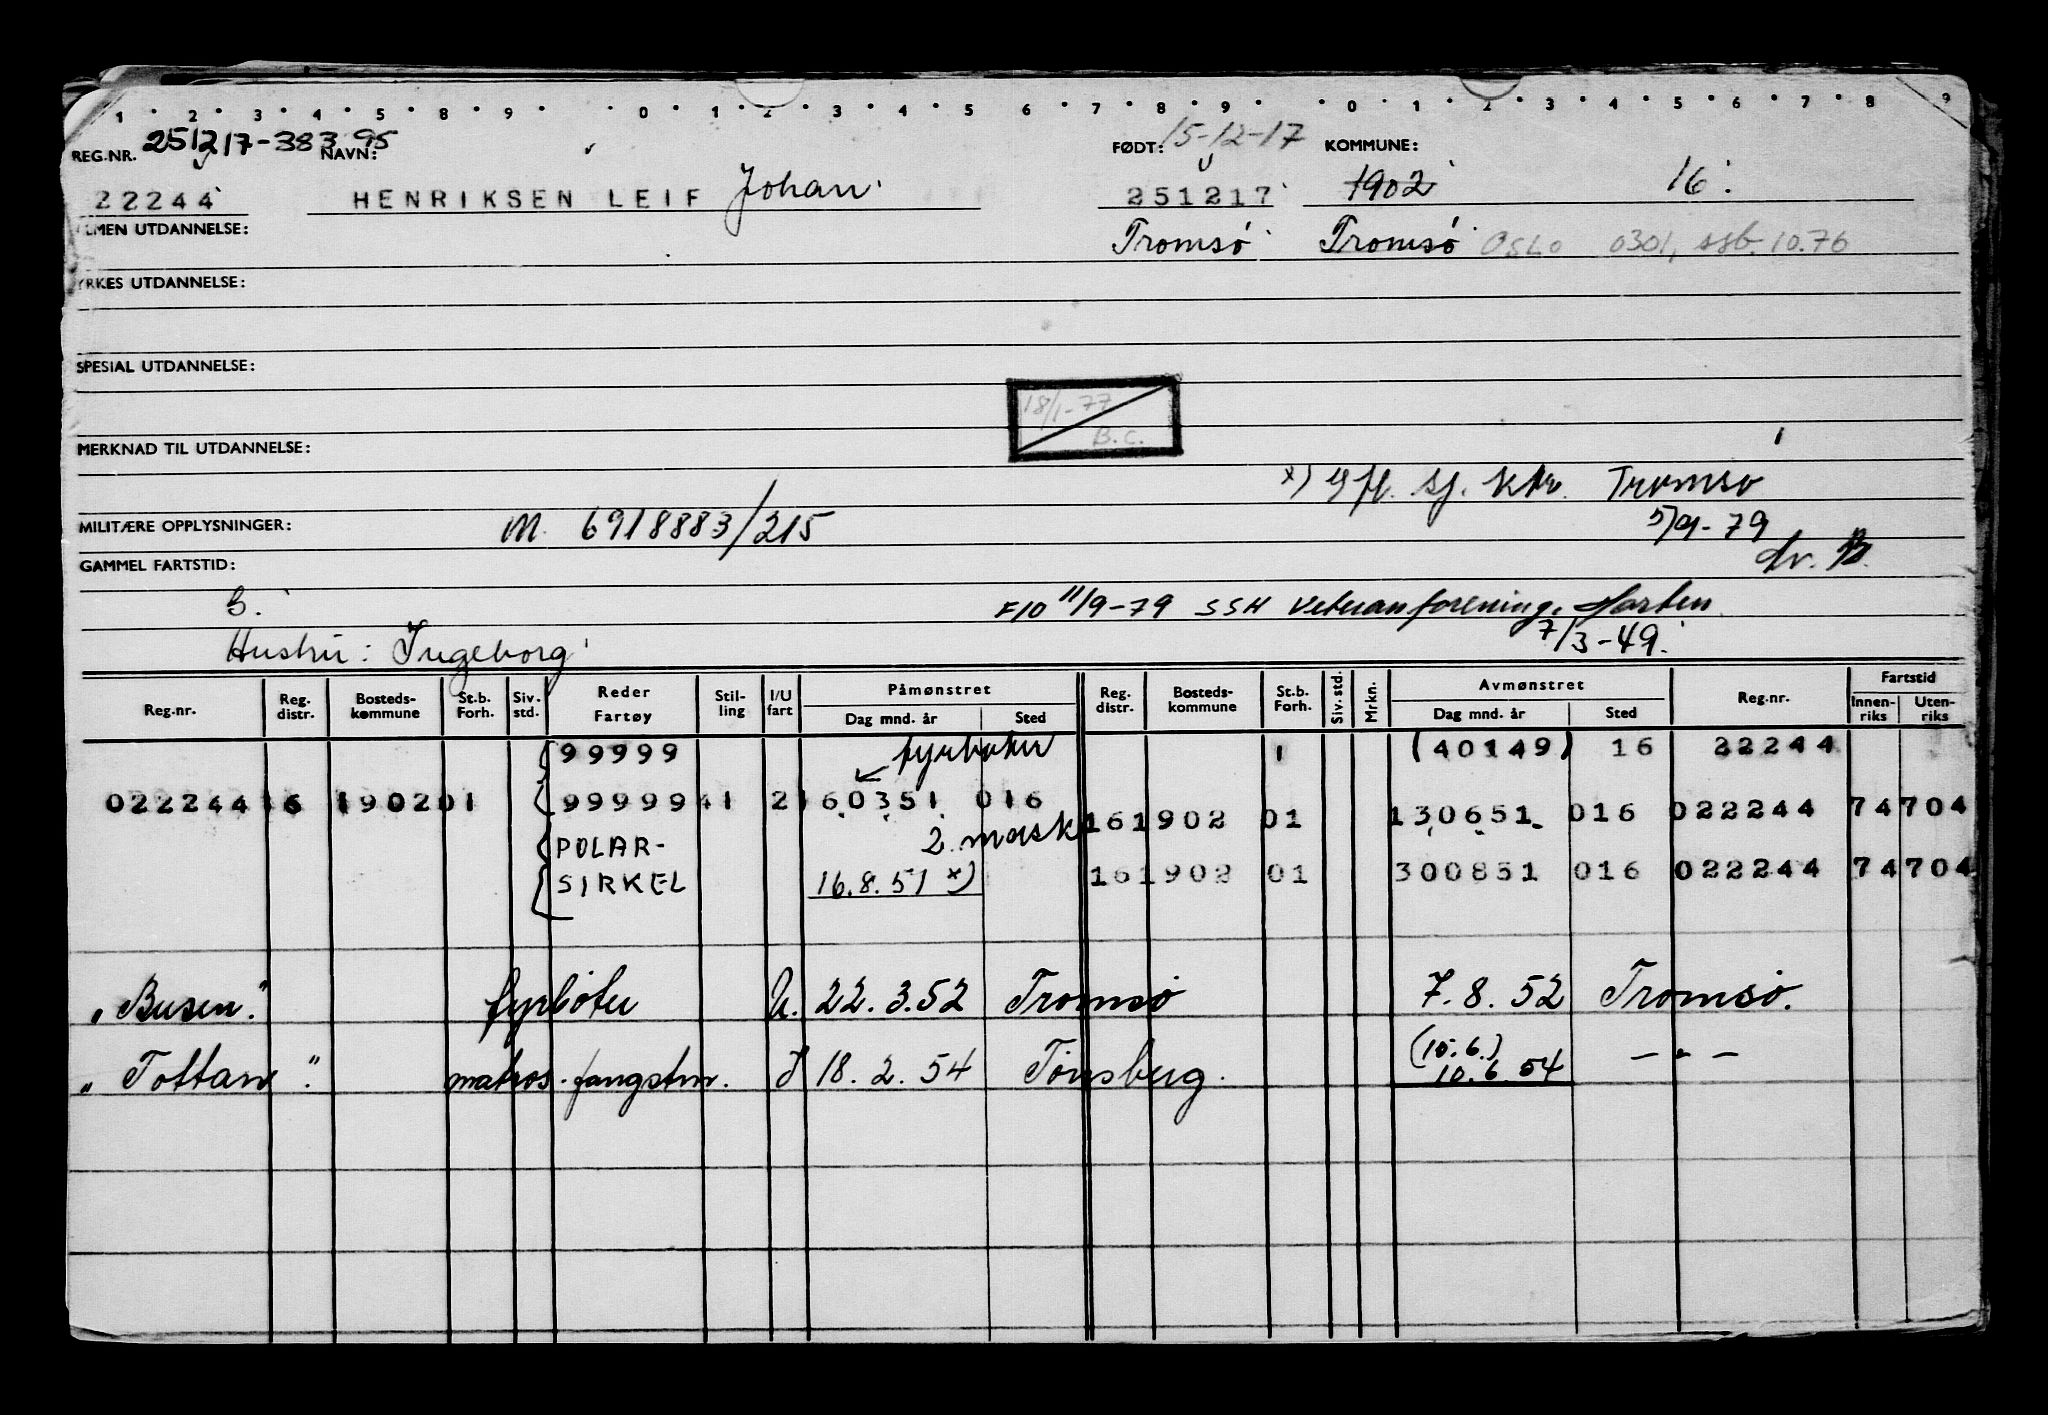 1 2 3 4 5 8 9 0 1 2 3 4 5 6 7 8 9 0 1 2 3 4 5 6 7 8 9
REG.NR. 251217-383 95 NAVN: FØDT: 15-12-17 KOMMUNE:
22244 HENRIKSEN LEIF Johan 251217 1902 16
LMEN UTDANNELSE: Tromsø Tromsø OSLO 0301, ssb. 10.76
YRKES UTDANNELSE:
SPESIAL UTDANNELSE:
18/1-77
B.C.
MERKNAD TIL UTDANNELSE:
x) sj. Tromsø
MILITÆRE OPPLYSNINGER: M. 6918883/215 5/9-79
GAMMEL FARTSTID:
G. F10 11/9-79 SSH Veteranforening,
Hustru: Ingeborg 7/3-49.
Reg.nr. Reg. distr. Bosteds-kommune St.b. Forh. Siv. std. Reder Fartøy Stil-ling I/U fart Påmønstret Dag mnd. år Sted Reg. distr. Bosteds-kommune St.b. Forh. Siv. std. Mrkn. Avmønstret Dag mnd. år Sted Reg.nr. Fartstid Innen-riks Uten-riks
99999 fyrbøter 1 (40149) 16 22244
022244 16 1902 01 99999 41 2 160351 016
161902 01 130651 016 022244 74 704
POLAR- 2. mask
SIRKEL 16.8.51 x) 161902 01 300851 016 022244 74 704
"Busen" fyrbøter U. 22.3.52 Tromsø 7.8.52 Tromsø.
(10.6.)
"Tottan" matros-fangstm. 18.2.54 Tønsberg. 10.6.54 — " —